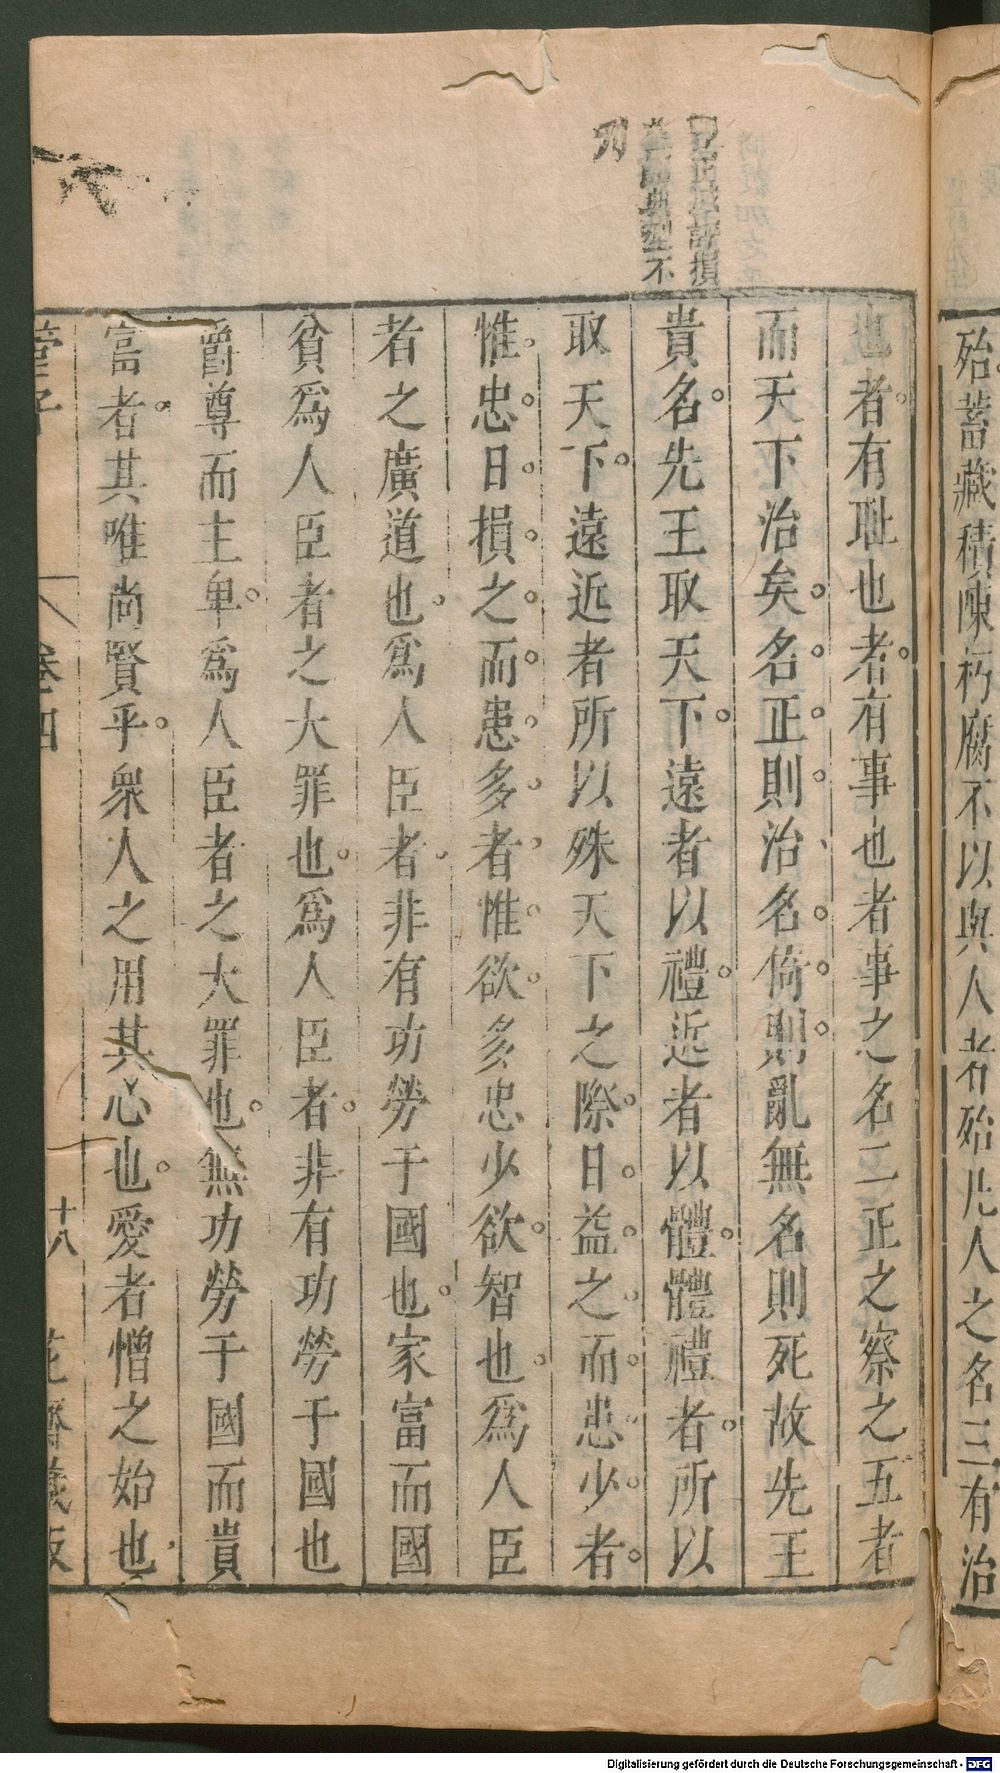 殆蓄藏積陳朽腐不以與人者殆凡人之名三有治
損
典型不
刋
也者有耻也者有事也者事之名二正之察之五者
而天下治矣名正則治名倚則亂無名則死故先王
貴名先王取天下遠者以禮近者以體體禮者所以
取天下遠近者所以殊天下之際日益之而患少者
惟忠日損之而患多者惟欲多忠少欲智也爲人臣
者之廣道也爲人臣者非有功勞于國也家富而國
貧爲人臣者之大罪也爲人臣者非有功勞于國也
爵尊而主卑爲人臣者之大罪也無功勞于國而貴
富者其唯尚賢乎衆人之用其心也愛者憎之始也
管子
卷四
十八
花齋藏板
Digitalisierung gefördert durch die Deutsche Forschungsgemeinschaft - DFG